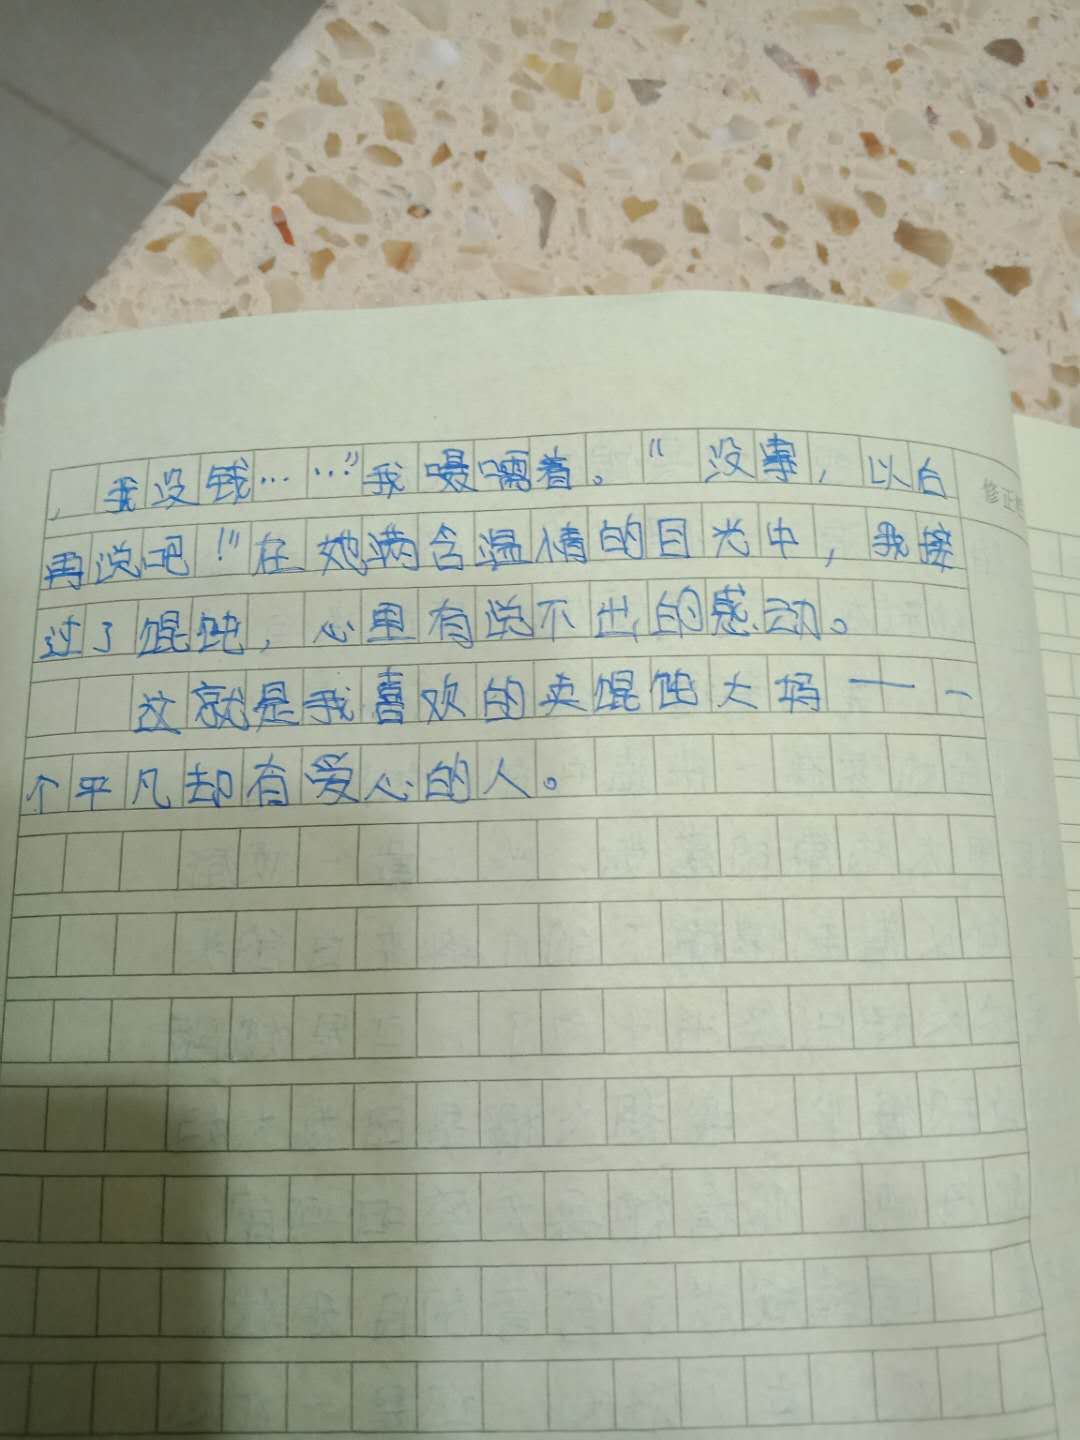 ，我没钱……”我嗫嚅着。“没事，以后
再说吧！”在她满含温情的目光中，我接
过了馄饨，心里有说不出的感动。
这就是我喜欢的卖馄饨大妈——一
个平凡却有爱心的人。
修正